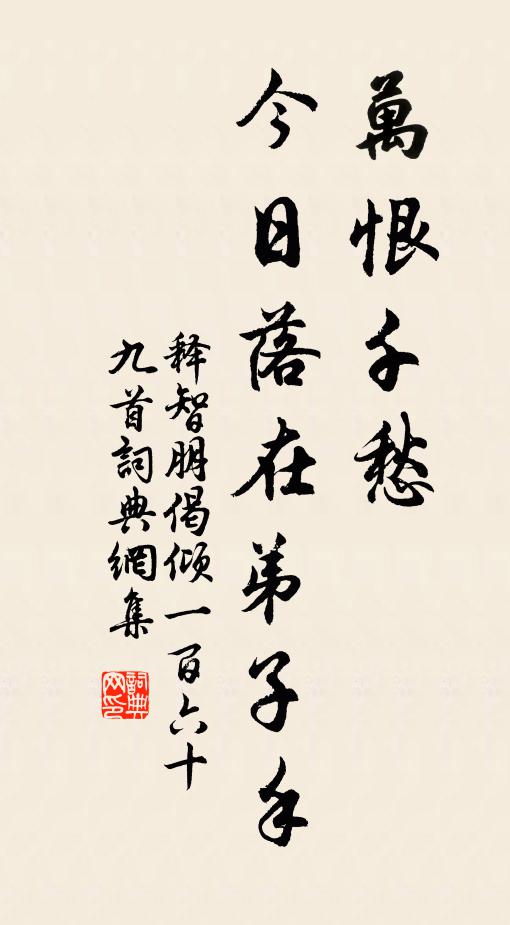 萬恨千愁
今日落在弟子手
释智朋偈傾一百六十
九首詞典網集
詞典網印